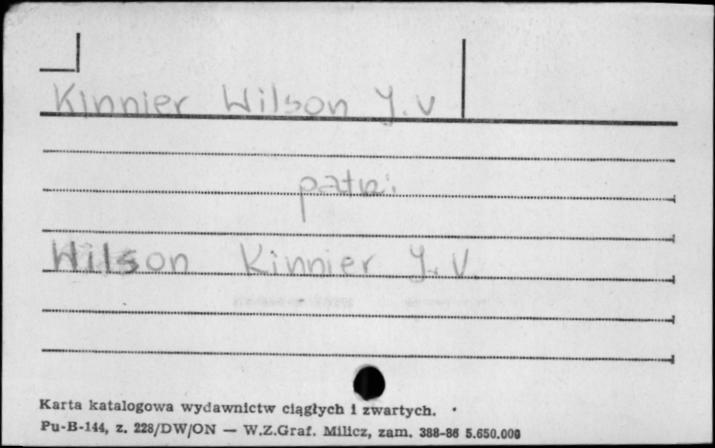 Kinnier Wilson J. V
patrz:
Wilson Kinnier J. V.
Karta katalogowa wydawnictw ciągłych i zwartych.
Pu-B-144, z. 228/DW/ON — W.Z.Graf. Milicz, zam. 388-86 5.650.000